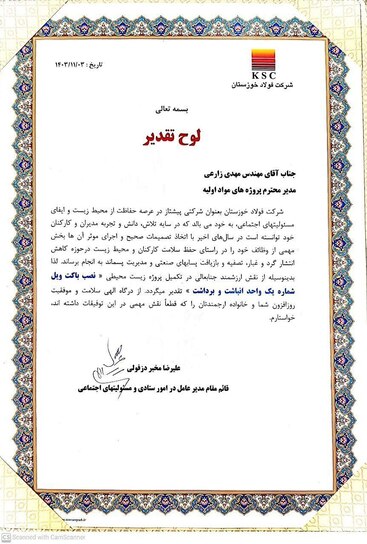 KSC
شرکت فولاد خوزستان
تاریخ : ۱۴۰۳/۱۱/۰۳
بسمه تعالی
لوح تقدیر
جناب آقای مهندس مهدی زارعی
مدیر محترم پروژه های مواد اولیه
شرکت فولاد خوزستان بعنوان شرکتی پیشتاز در عرصه حفاظت از محیط زیست و ایفای
مسئولیتهای اجتماعی، به خود می بالد که در سایه تلاش، دانش و تجربه مدیران و کارکنان
خود توانسته است در سال‌های اخیر با اتخاذ تصمیمات صحیح و اجرای موثر آن ها بخش
مهمی از وظائف خود را در راستای حفظ سلامت کارکنان و محیط زیست درحوزه کاهش
انتشار گرد و غبار، تصفیه و بازیافت پسابهای صنعتی و مدیریت پسماند به انجام برساند. لذا
بدینوسیله از نقش ارزشمند جنابعالی در تکمیل پروژه زیست محیطی « نصب باکت ویل
شماره یک واحد انباشت و برداشت » تقدیر میگردد. از درگاه الهی سلامت و موفقیت
روزافزون شما و خانواده ارجمندتان را که قطعاً نقش مهمی در این توفیقات داشته اند،
خواستارم.
علیرضا مخبر دزفولی
قائم مقام مدیر عامل در امور ستادی و مسئولیتهای اجتماعی
CS Scanned with CamScanner